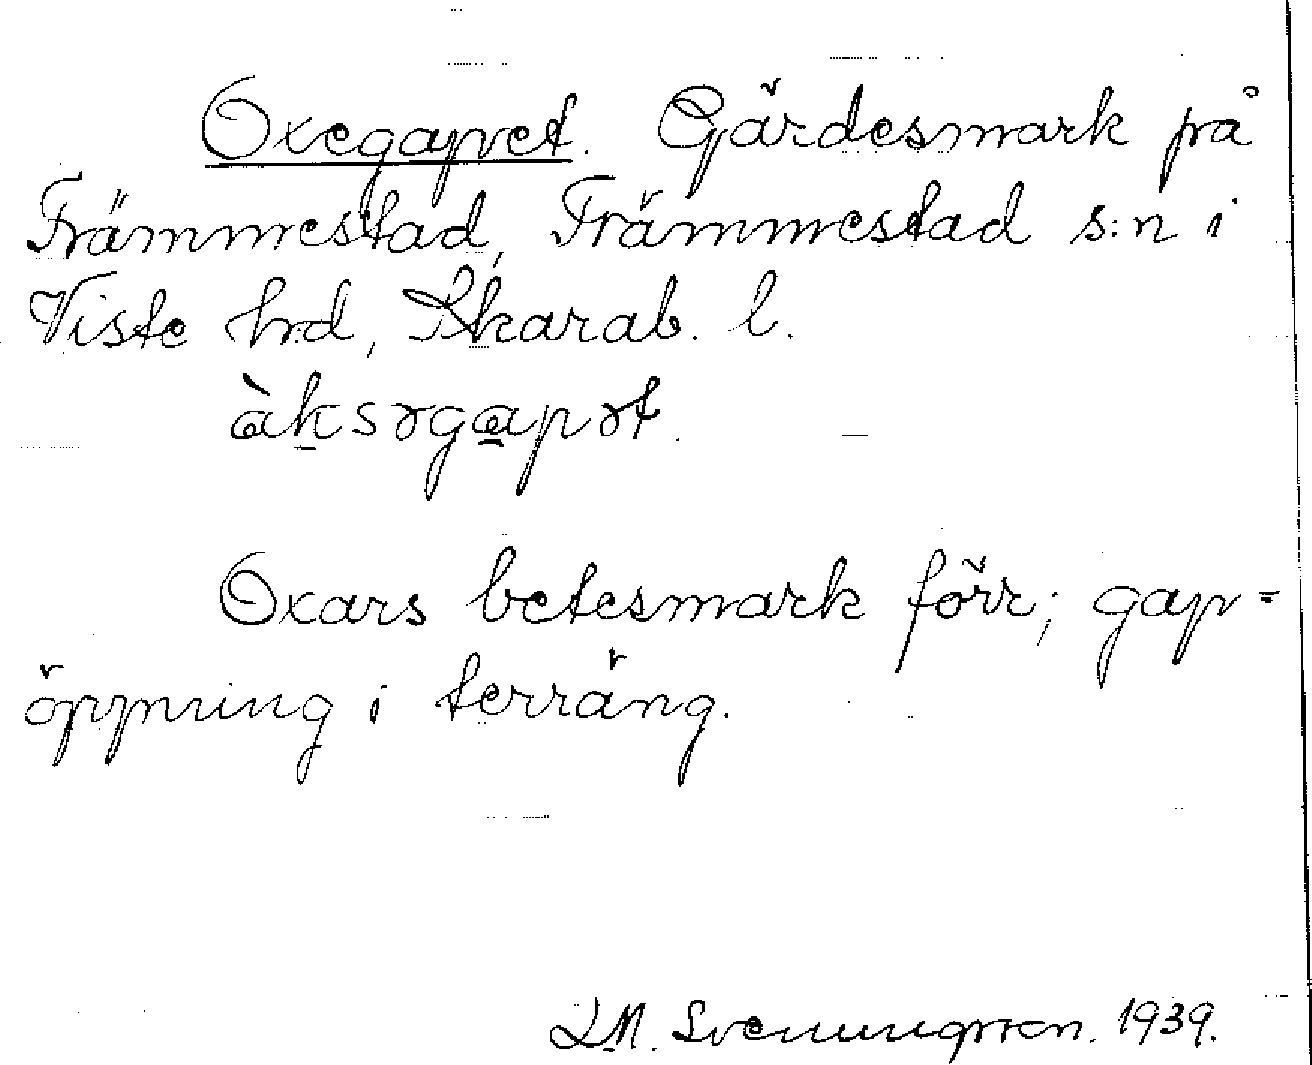 Oxegapet. Gärdesmark på
Främmestad, Främmestad s:n i
Viste hd, Skarab. l.
àksəgapət.
Oxars betesmark förr; gap=
öppning i terräng.
L.M. Svenungsson. 1939.